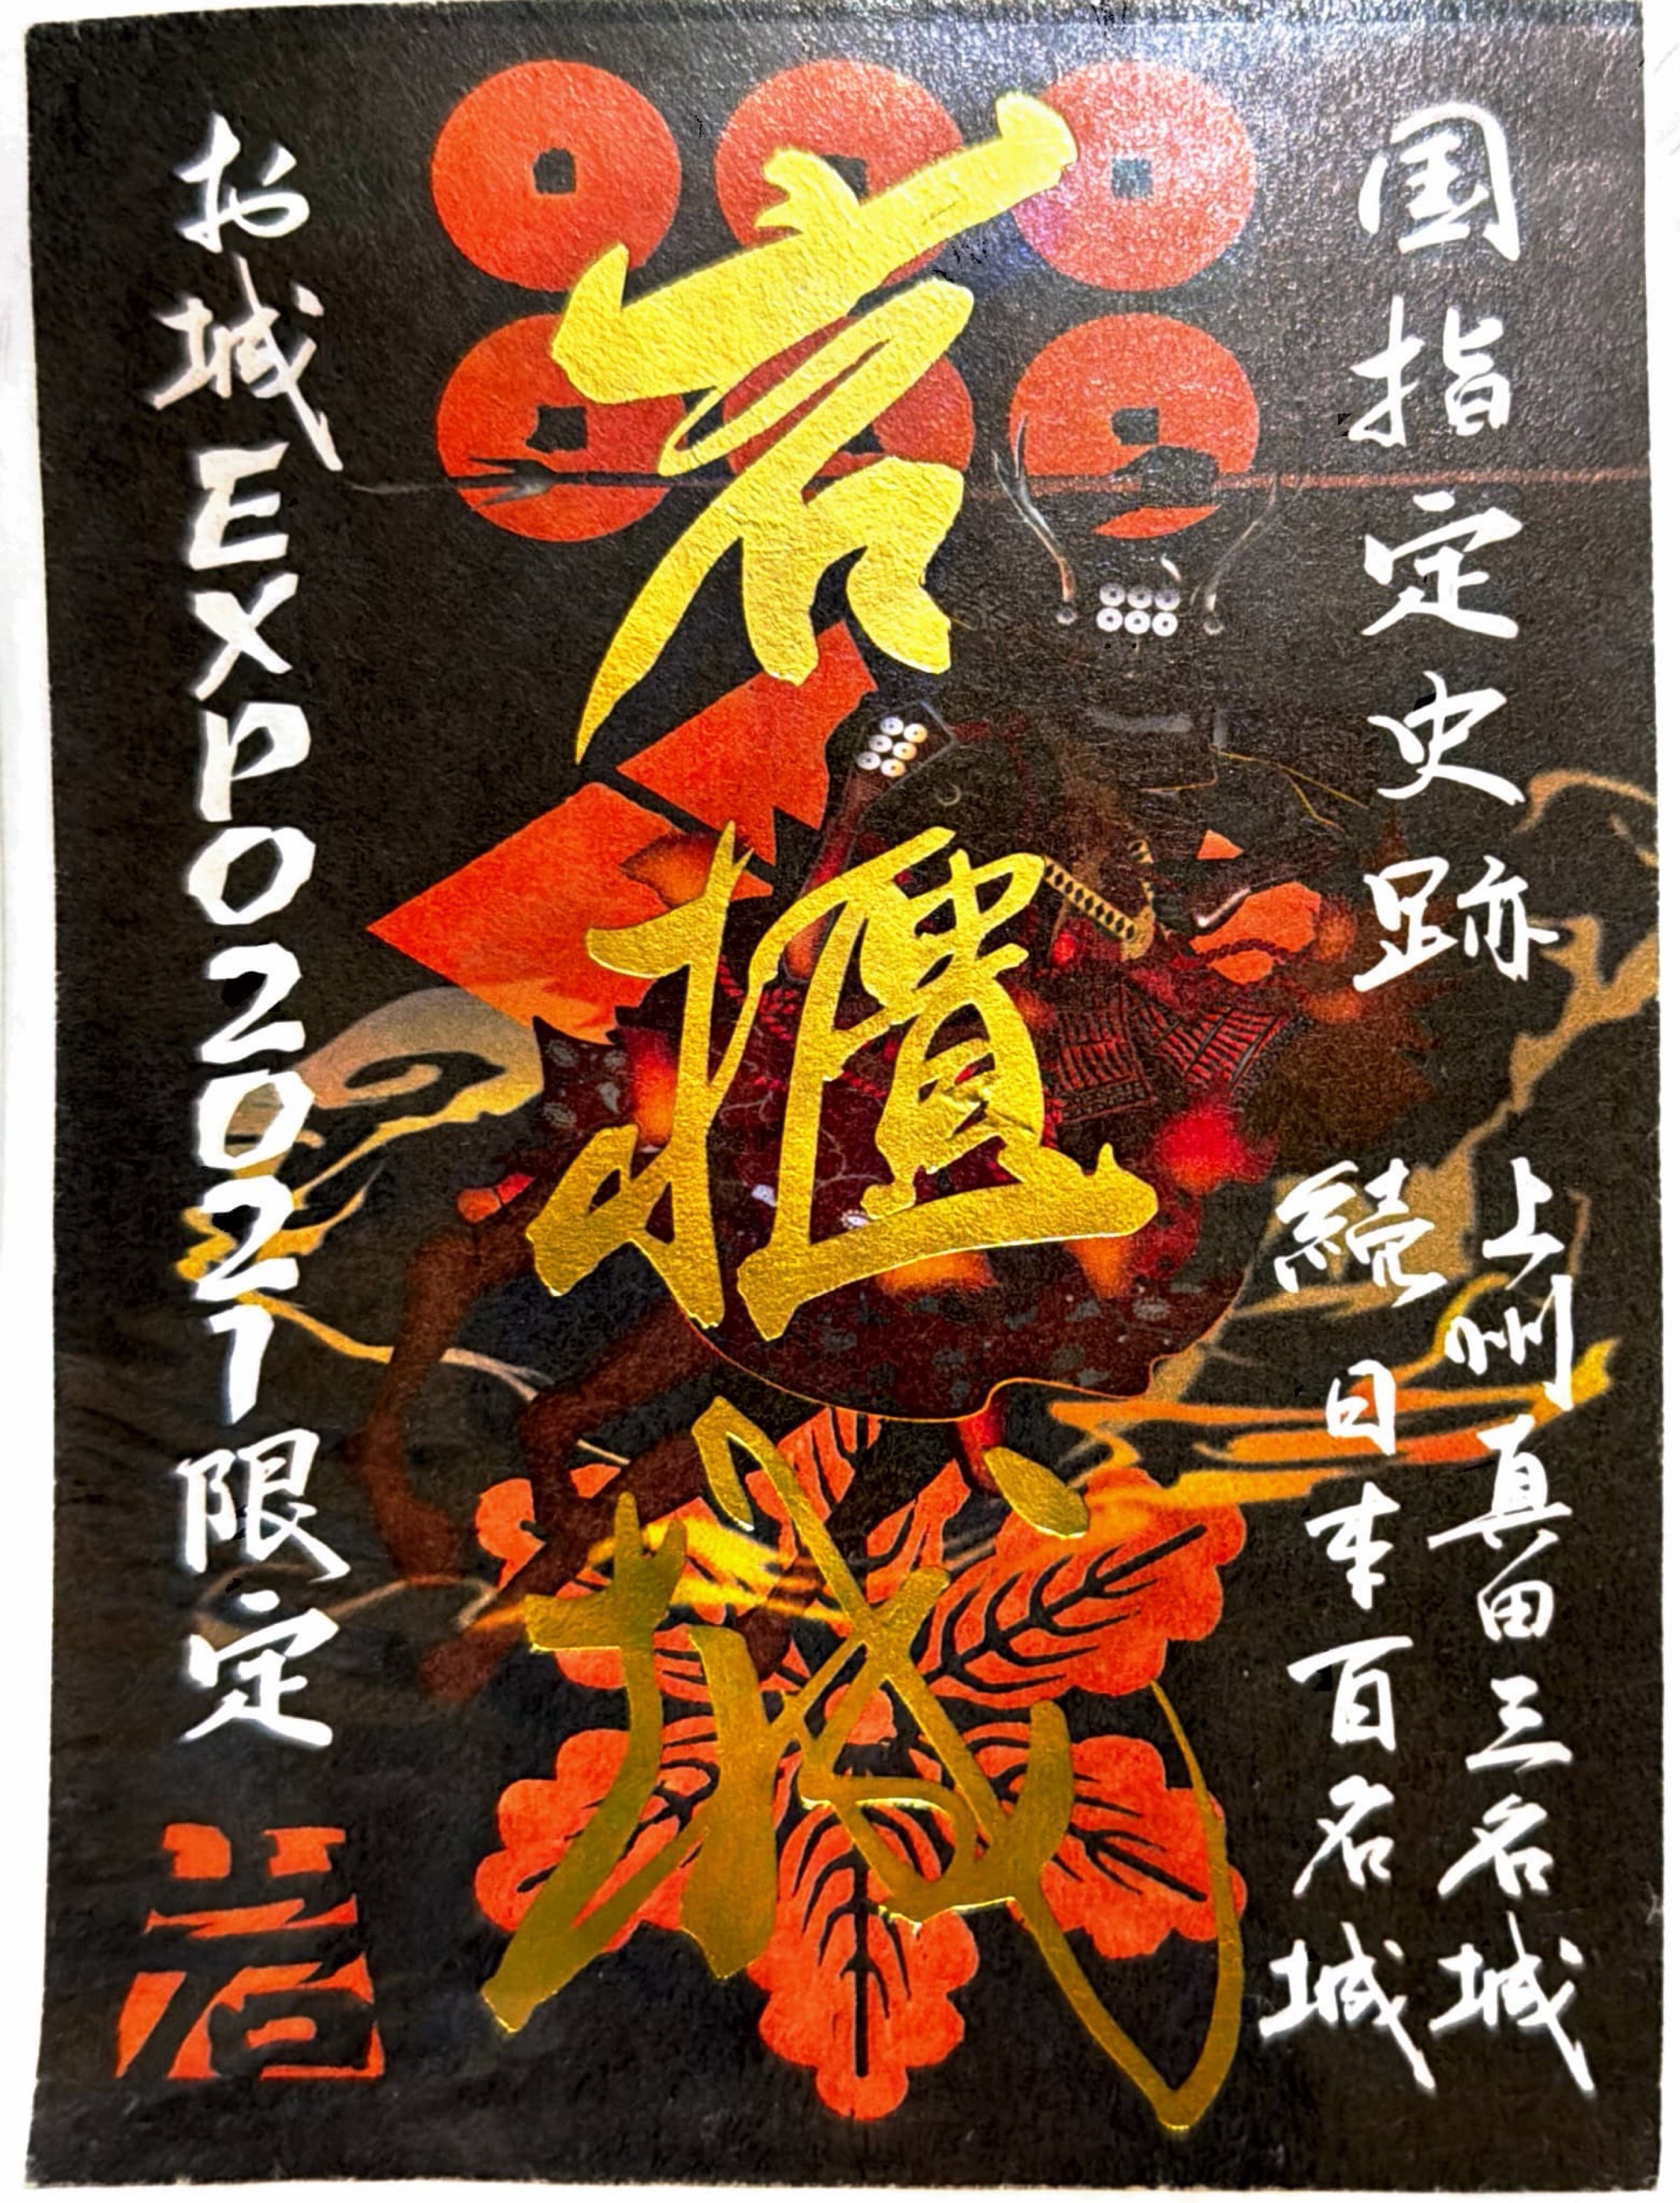 国指定史跡
上州真田三名城
続日本百名城
岩櫃城
お城EXPO2021限定
岩